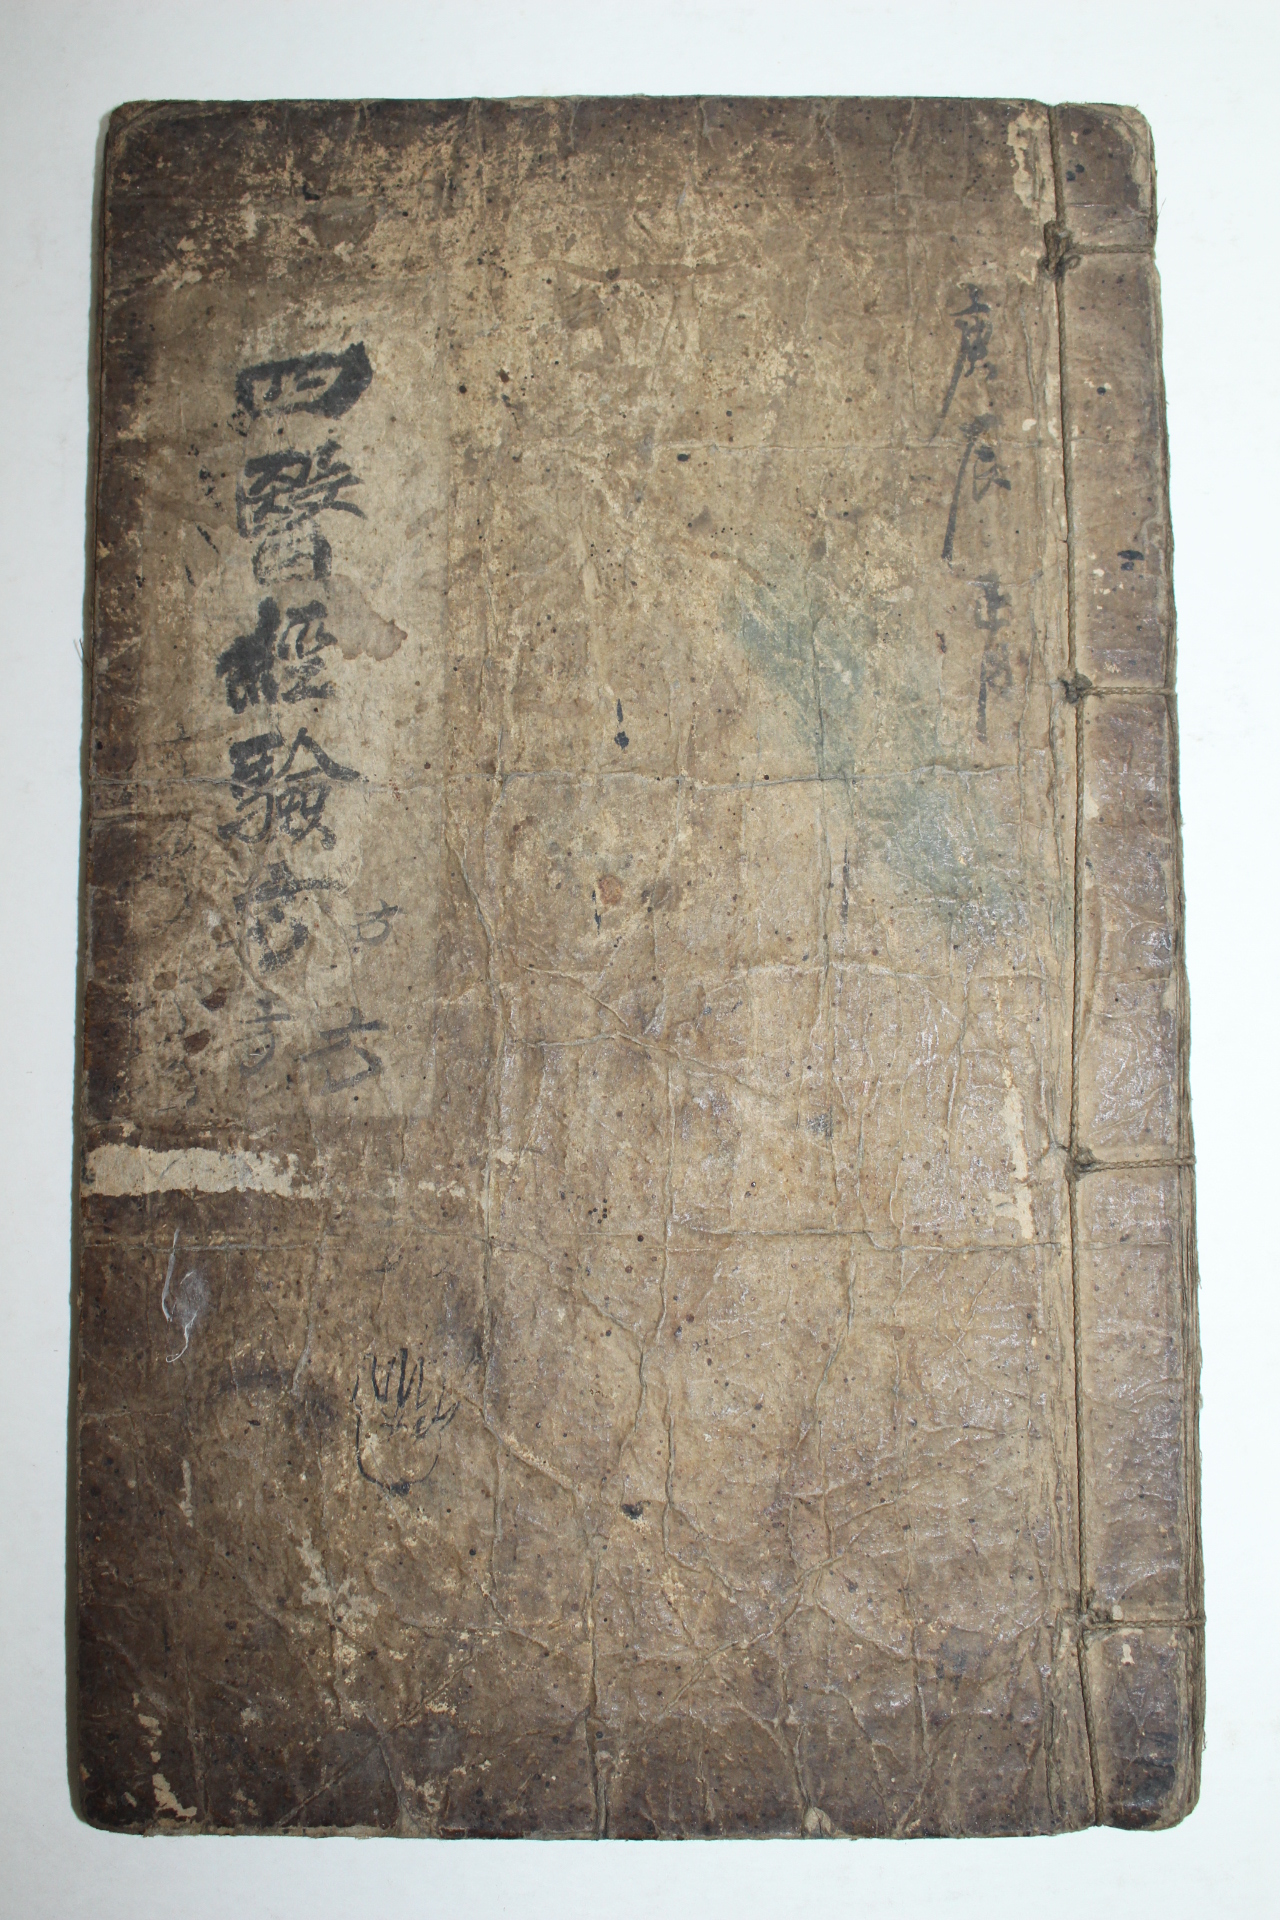 庚辰正月
四醫經驗方
方